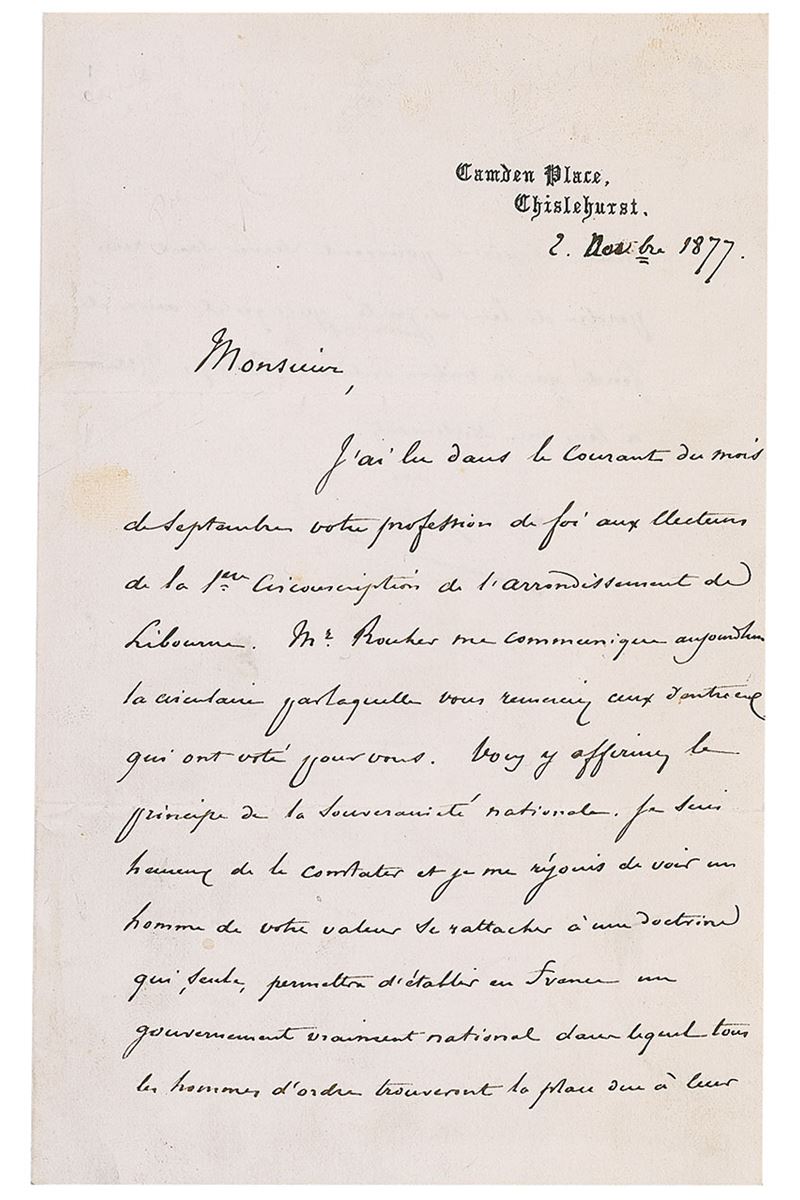 Camden Place,
Chislehurst.
2. Novbre 1877.
Monsieur,
J'ai lu dans le courant du mois
de Septembre votre profession de foi aux électeurs
de la 1ère Circonscription de l'arrondissement de
Libourne. Mr. Rouher me communique aujourd'hui
la circulaire par laquelle vous remerciez ceux d'entre eux
qui ont voté pour vous. Vous y affirmez le
principe de la Souveraineté nationale. Je suis
heureux de le constater et je me réjouis de voir un
homme de votre valeur se rattacher à une doctrine
qui, seule, permettra d'établir en France un
gouvernement vraiment national dans lequel tous
les hommes d'ordre trouveront la place due à leur